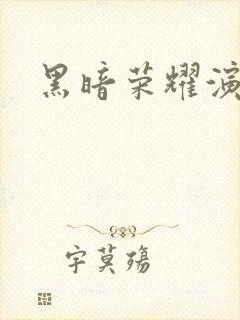 黑暗荣耀演
字莫殇